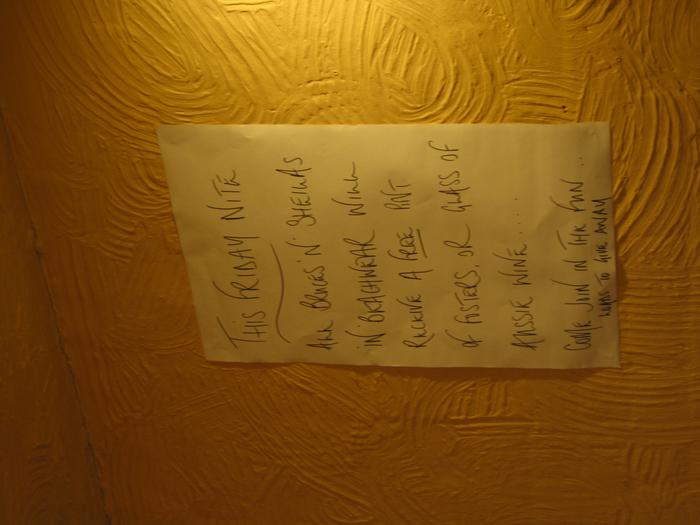 THIS FRIDAY NITE
ALL BRUCES 'N' SHEILAS
IN BEACHWEAR WILL
RECEIVE A FREE PINT
OF FOSTERS, OR GLASS OF
AUSSIE WINE ....
COME JOIN IN THE FUN ...
LOADS TO GIVE AWAY